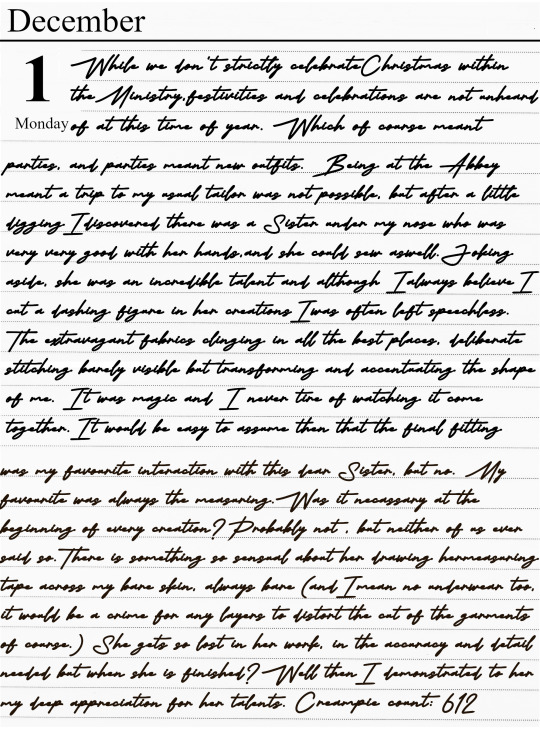 December
1
Monday
While we don't strictly celebrate Christmas within
the Ministry, festivities and celebrations are not unheard
of at this time of year. Which of course meant
parties, and parties meant new outfits. Being at the Abbey
meant a trip to my usual tailor was not possible, but after a little
digging I discovered there was a Sister under my nose who was
very very good with her hands, and she could sew aswell. Joking
aside, she was an incredible talent and although I always believe I
cut a dashing figure in her creations I was often left speechless.
The extravagant fabrics clinging in all the best places, deliberate
stitching barely visible but transforming and accentuating the shape
of me. It was magic and I never tire of watching it come
together. It would be easy to assume then that the final fitting
was my favourite interaction with this dear Sister, but no. My
favourite was always the measuring. Was it necassary at the
beginning of every creation? Probably not, but neither of us ever
said so. There is something so sensual about her drawing her measuring
tape across my bare skin, always bare (and I mean no underwear too,
it would be a crime for any layers to distort the cut of the garments
of course.) She gets so lost in her work, in the accuracy and detail
needed but when she is finished? Well then I demonstrated to her
my deep appreciation for her talents. Creampie count: 612